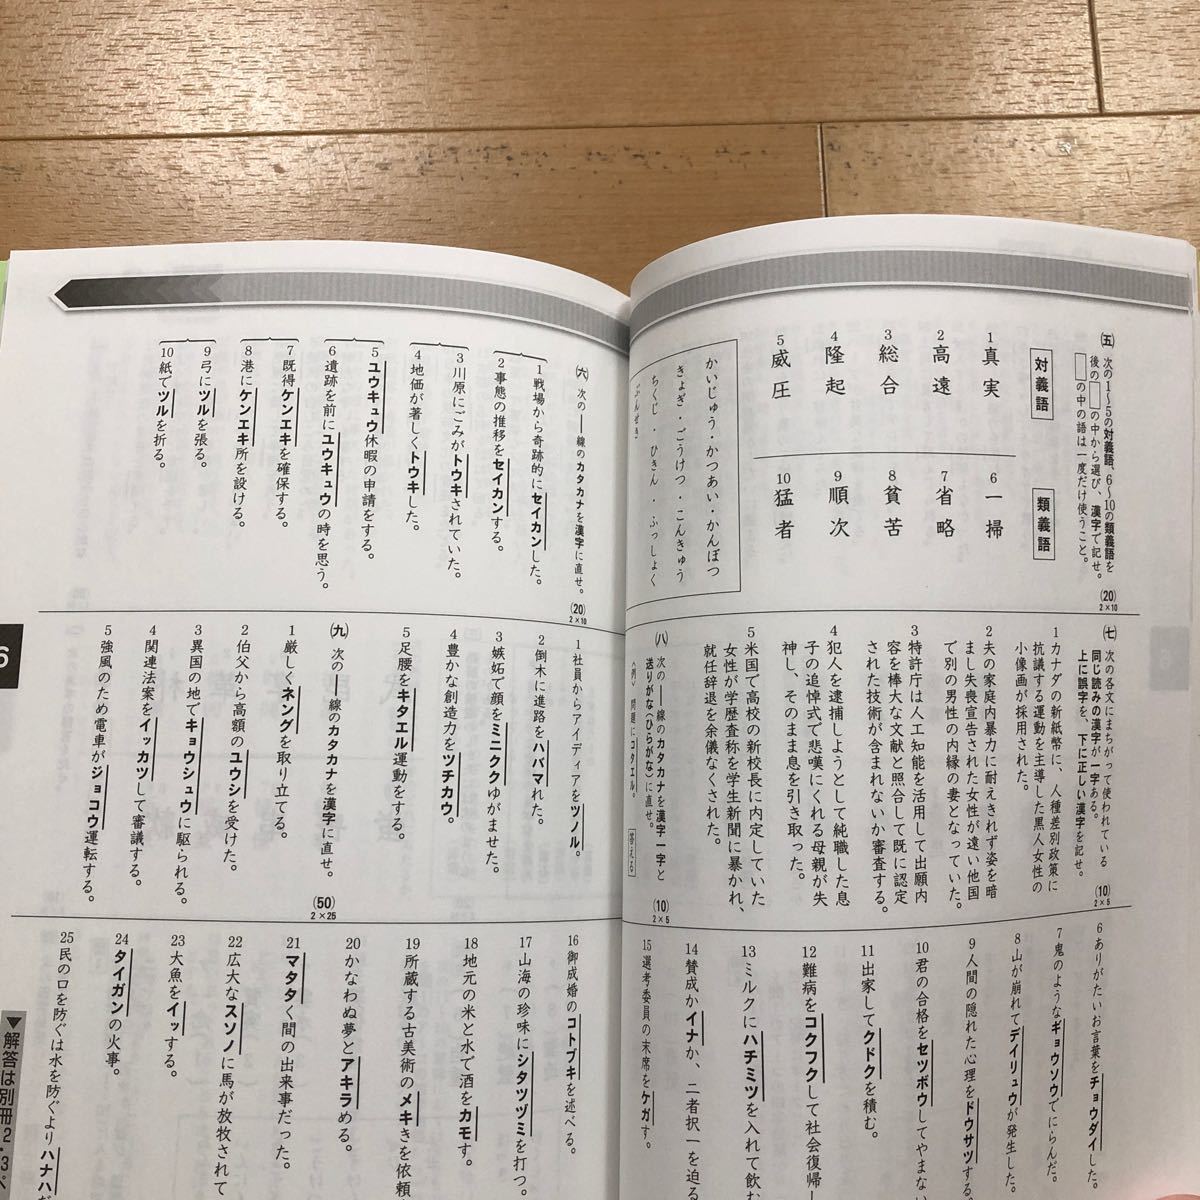 ㈤ 次の1〜5の対義語、6〜10の類義語を
後の□の中から選び、漢字で記せ。
□の中の語は一度だけ使うこと。
(20)
2×10
対義語
1 真実
2 高遠
3 総合
4 隆起
5 威圧
類義語
6 一掃
7 省略
8 貧苦
9 順次
10 猛者
かいじゅう・かつあい・かんぼつ
きょぎ・ごうけつ・こんきゅう
ちくじ・ひきん・ふっしょく
ぶんせき
㈥ 次の――線のカタカナを漢字に直せ。
(20)
2×10
1 戦場から奇跡的にセイカンした。
2 事態の推移をセイカンする。
3 川原にごみがトウキされていた。
4 地価が著しくトウキした。
5 ユウキュウ休暇の申請をする。
6 遺跡を前にユウキュウの時を思う。
7 既得ケンエキを確保する。
8 港にケンエキ所を設ける。
9 弓にツルを張る。
10 紙でツルを折る。
㈦ 次の各文にまちがって使われている
同じ読みの漢字が一字ある。
上に誤字を、下に正しい漢字を記せ。
(10)
2×5
1 カナダの新紙幣に、人種差別政策に
抗議する運動を主導した黒人女性の
小像画が採用された。
2 夫の家庭内暴力に耐えきれず姿を暗
まし失喪宣告された女性が遠い他国
で別の男性の内縁の妻となっていた。
3 特許庁は人工知能を活用して出願内
容を棒大な文献と照合して既に認定
された技術が含まれないか審査する。
4 犯人を逮捕しようとして純職した息
子の追悼式で悲嘆にくれる母親が失
神し、そのまま息を引き取った。
5 米国で高校の新校長に内定していた
女性が学歴査称を学生新聞に暴かれ、
就任辞退を余儀なくされた。
㈧ 次の――線のカタカナを漢字一字と
送りがな(ひらがな)に直せ。
(10)
2×5
〈例〉問題にコタエル。 答える
1 社員からアイディアをツノル。
2 倒木に進路をハバマれた。
3 嫉妬で顔をミニククゆがませた。
4 豊かな創造力をツチカウ。
5 足腰をキタエル運動をする。
㈨ 次の――線のカタカナを漢字に直せ。
(50)
2×25
1 厳しくネングを取り立てる。
2 伯父から高額のユウシを受けた。
3 異国の地でキョウシュウに駆られる。
4 関連法案をイッカツして審議する。
5 強風のため電車がジョコウ運転する。
6 ありがたいお言葉をチョウダイした。
7 鬼のようなギョウソウでにらんだ。
8 山が崩れてデイリュウが発生した。
9 人間の隠れた心理をドウサツする。
10 君の合格をセツボウしてやまない
11 出家してクドクを積む。
12 難病をコクフクして社会復帰し
13 ミルクにハチミツを入れて飲む
14 賛成かイナか、二者択一を迫る
15 選考委員の末席をケガす。
16 御成婚のコトブキを述べる。
17 山海の珍味にシタツヅミを打つ。
18 地元の米と水で酒をカモす。
19 所蔵する古美術のメキきを依頼
20 かなわぬ夢とアキラめる。
21 マタタく間の出来事だった。
22 広大なスソノに馬が放牧されて
23 大魚をイッする。
24 タイガンの火事。
25 民の口を防ぐは水を防ぐよりハナハだ
6
▼解答は別冊2・3ペ